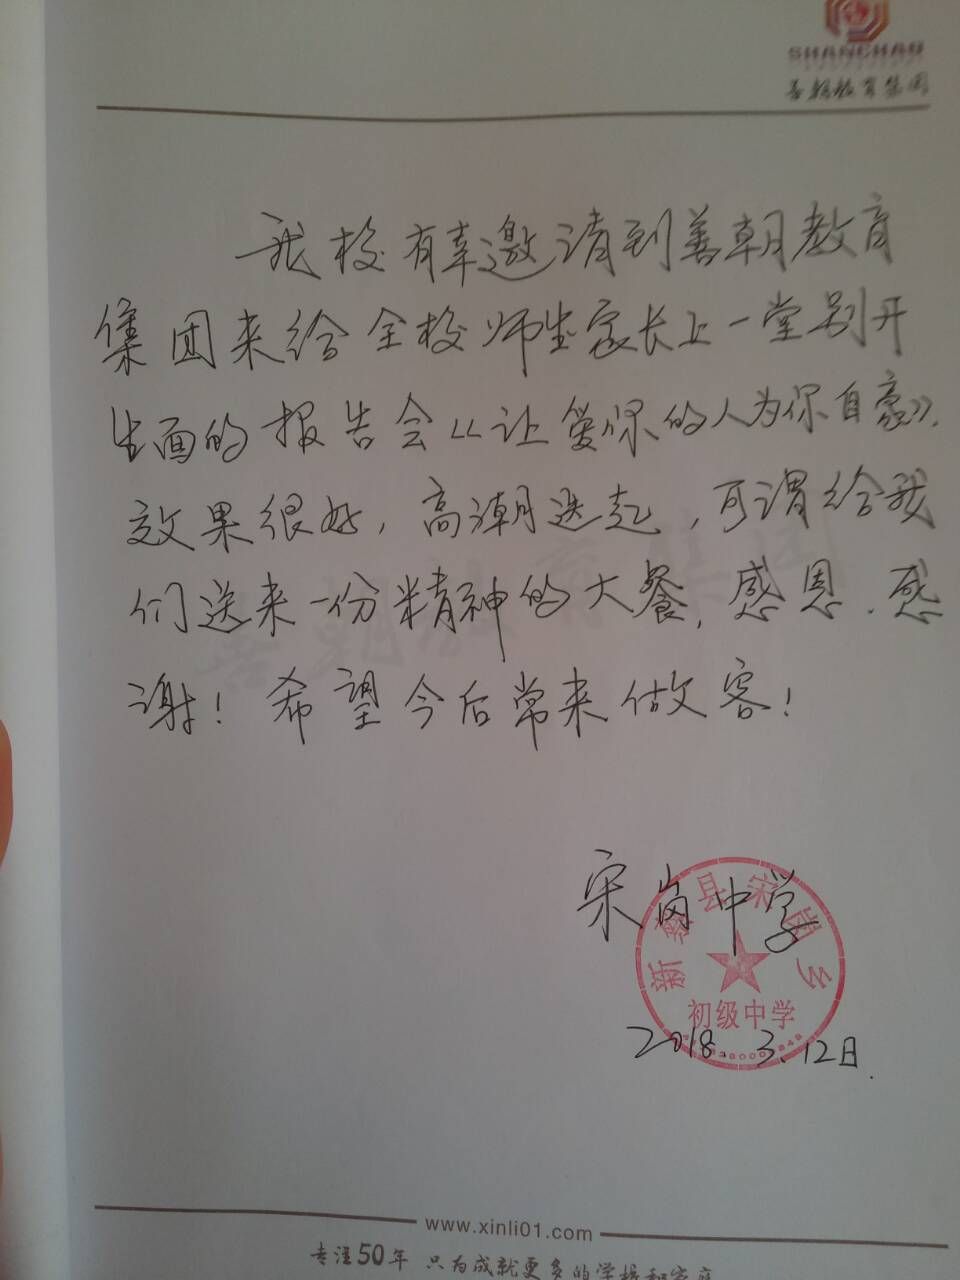 SHANCHAO
善朝教育集团
我校有幸邀请到善朝教育
集团来给全校师生家长上一堂别开
生面的报告会《让爱你的人为你自豪》.
效果很好，高潮迭起，可谓给我
们送来一份精神的大餐，感恩．感
谢！希望今后常来做客！
宋岗中学
新蔡县宋岗乡
初级中学
2018.3.12日.
www.xinli01.com
专注50年 只为成就更多的学校和家庭